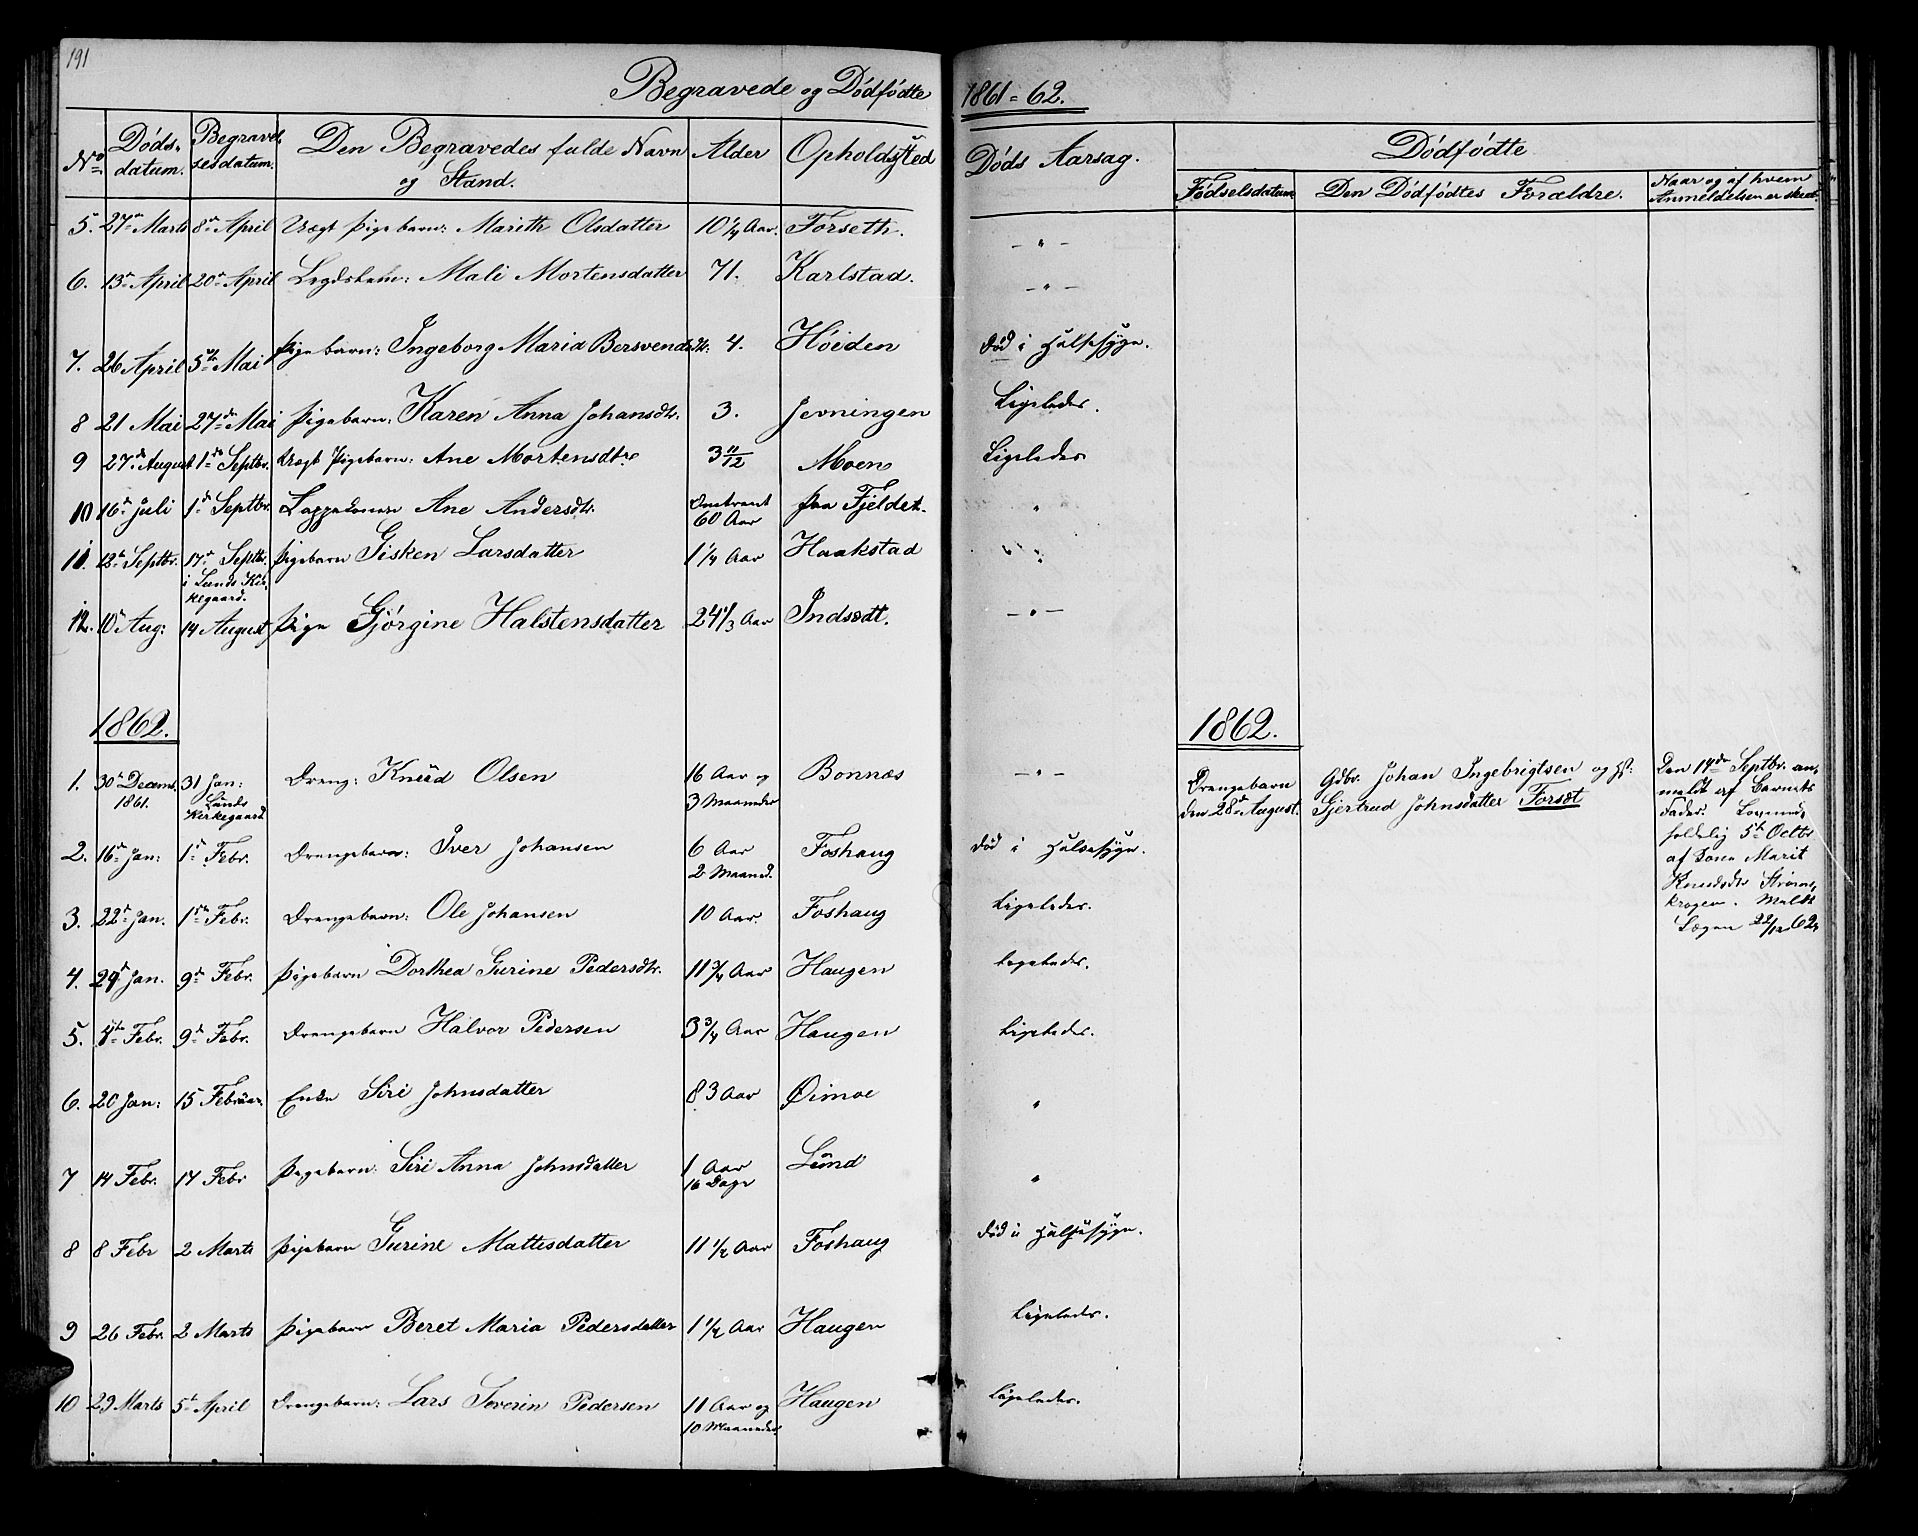 191
Begravede og Dödfödte 1861=62.
No Döds-datum. Begravel-sesdatum. Den Begravedes fulde Navn og Stand. Alder Opholdssted Döds Aarsag. Dödfödte
Födselsdatum Den Dödfödtes Forældre. Naar og af hvem Anmeldelsen er skeet.
5. 27de Marts 8de April Vægt Pigebarn: Marith Olsdatter 10 1/4 Aar. Forseth. – " –
6. 13de April 20de April Legdslem: Mali Mortensdatter 71. Karlstad. – " –
7. 26 April 5te Mai Pigebarn: Ingeborg Maria Bersvendsdtr: 4. Höiden Död i Halsesyge.
8 21 Mai 27de Mai Pigebarn: Karen Anna Johansdtr. 3. Jevningen Ligeledes.
9 27de August 1de Septbr. Vægt Pigebarn: Ane Mortensdtr 3 11/12 Moen Ligeledes
10 16de Juli 1de Septbr. Lappekone Ane Andersdtr. Omtrent 60 Aar paa Fjeldet. "
11. 12te Septbr. 17de Septbr. i Lunds Kirkegaard. Pigebarn Gisken Larsdatter 1 1/4 Aar Haakstad "
12. 10de Aug: 14 August Pige Gjörgine Halstensdatter 24 1/3 Aar Indsædt. – " –
1862.
1862.
1. 30te Decemb. 1861. 31 Jan: Lunds Kirkegaard Dreng: Knud Olsen 16 Aar og 3 Maaneder Bonnæs – " –
Drengebarn den 28de August. Gdbr. Johan Ingebrigtsen og H: Gjertrud Johnsdatter Forsæt
Den 14de Septbr. an-
meldt af Barnets
Fader.
5te Octbr
af Marit
Knudsdtr Ström-
krogen. Meldt
Lægen 22/12 62.
2. 16de Jan: 1de Febr. Drengebarn: Iver Johansen 6 Aar 2 Maaned. Foshaug Död i Halsesyge.
3. 22de Jan. 1ste Febr. Drengebarn: Ole Johansen 10 Aar. Foshaug Ligeledes.
4. 29de Jan. 9de Febr. Pigebarn Dorthea Gurine Pedersdtr. 11 3/4 Aar Haugen Ligeledes.
5. 4de Febr. 9de Febr. Drengebarn Halvor Pedersen 3 3/4 Aar Haugen Ligeledes.
6. 20 Jan: 15 Februar. Enke Siri Johnsdatter 83 Aar Öimoe "
7 14 Febr. 17 Febr Pigebarn: Siri Anna Johnsdatter 1 Aar 16 Dage Lund "
8 8 Febr 2 Marts Pigebarn Gurine Mattisdatter 11 1/2 Aar Foshaug Död i Halsesyge.
9 26 Febr. 2 Marts Pigebarn Beret Maria Pedersdatter 1 1/2 Aar Haugen Ligeledes.
10 29 Marts 5te April Drengebarn: Lars Severin Pedersen 11 Aar og 10 Maaneder Haugen Ligeledes.